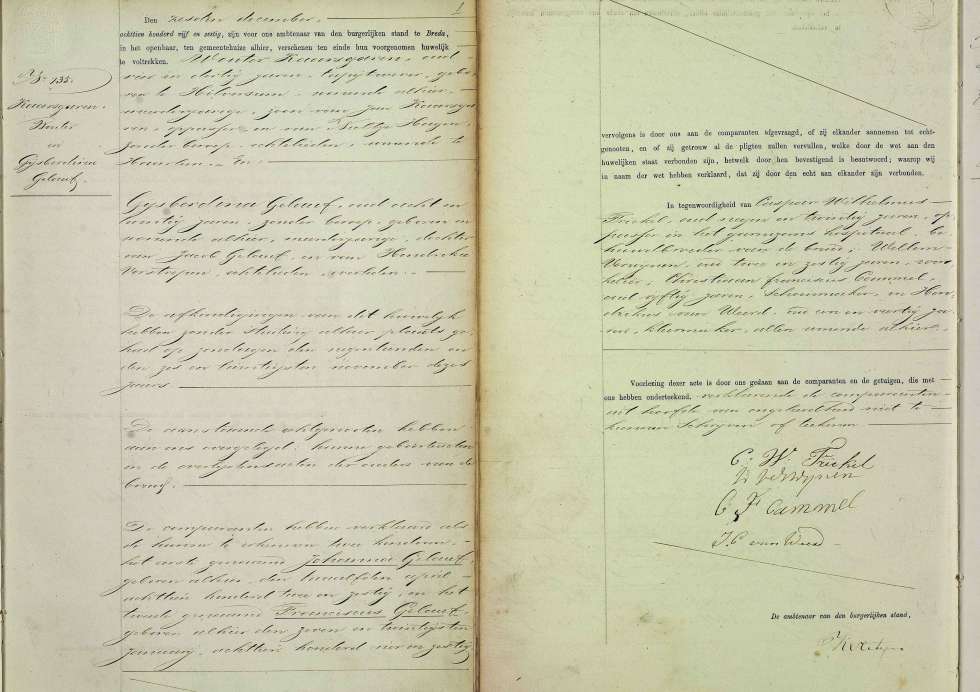 1
Den zesden december,
achttien honderd vijf en zestig, zijn voor ons ambtenaar van den burgerlijken stand te Breda,
in het openbaar, ten gemeentehuize alhier, verschenen ten einde hun voorgenomen huwelijk
te voltrekken. Wouter Raamsgaren, oud
vier en dertig jaren, tapijtwever, gebo-
ren te Hilversum, wonende alhier,
meerderjarige zoon van Jan Raamsga-
ren, oppasser en van
zonder beroep, echtelieden, wonende te
Haarlem. En
No. 135.
Raamsgaren.
Wouter
en
Gijsberdina
Gelauf.
Gijsberdina Gelauf, oud acht en
twintig jaren, zonder beroep, geboren en
wonende alhier, meerderjarige dochter
van Jacob Gelauf en van Hendrika
Verstrepen, echtelieden, overleden.
De afkondigingen van dit huwelijk
hebben zonder stuiting alhier plaats ge-
had op zondagen den negentienden en
den zes en twintigsten november dezes
jaars.
De aanstaande echtgenooten hebben
aan ons overgelegd hunne geboorteacten
en de overlijdensacten der ouders van de
bruid.
De comparanten hebben verklaard als
de hunne te erkennen twee kinderen,
het eerste genaamd Johanna Gelauf,
geboren alhier, den twaalfden april
achttien honderd twee en zestig, en het
tweede genaamd Franciscus Gelauf,
geboren alhier den zeven en twintigsten
January, achttien honderd vier en zestig
vervolgens is door ons aan de comparanten afgevraagd, of zij elkander aannemen tot echt-
genooten, en of zij getrouw al de pligten zullen vervullen, welke door de wet aan den
huwelijken staat verbonden zijn, hetwelk door hen bevestigend is beantwoord; waarop wij
in naam der wet hebben verklaard, dat zij door den echt aan elkander zijn verbonden.
In tegenwoordigheid van Caspar Wilhelmus
Frickel, oud negen en twintig jaren, op-
passer in het garnizoens hospitaal, be-
huwdbroeder van de bruid, Willem
Verwijnen, oud twee en zestig jaren,
Christiaan Franciscus Cammel,
oud vijftig jaren, schoenmaker, en Hen-
drikus van Weerd, oud een en veertig ja-
ren, kleermaker, allen wonende alhier.
Voorlezing dezer acte is door ons gedaan aan de comparanten en de getuigen, die met
ons hebben onderteekend, verklarende de comparanten
uit hoofde van ongeleerdheid niet te
kunnen schrijven of teekenen
C. W. Frickel
W Verwijnen
C F Cammel
van Weerd
De ambtenaar van den burgerlijken stand,